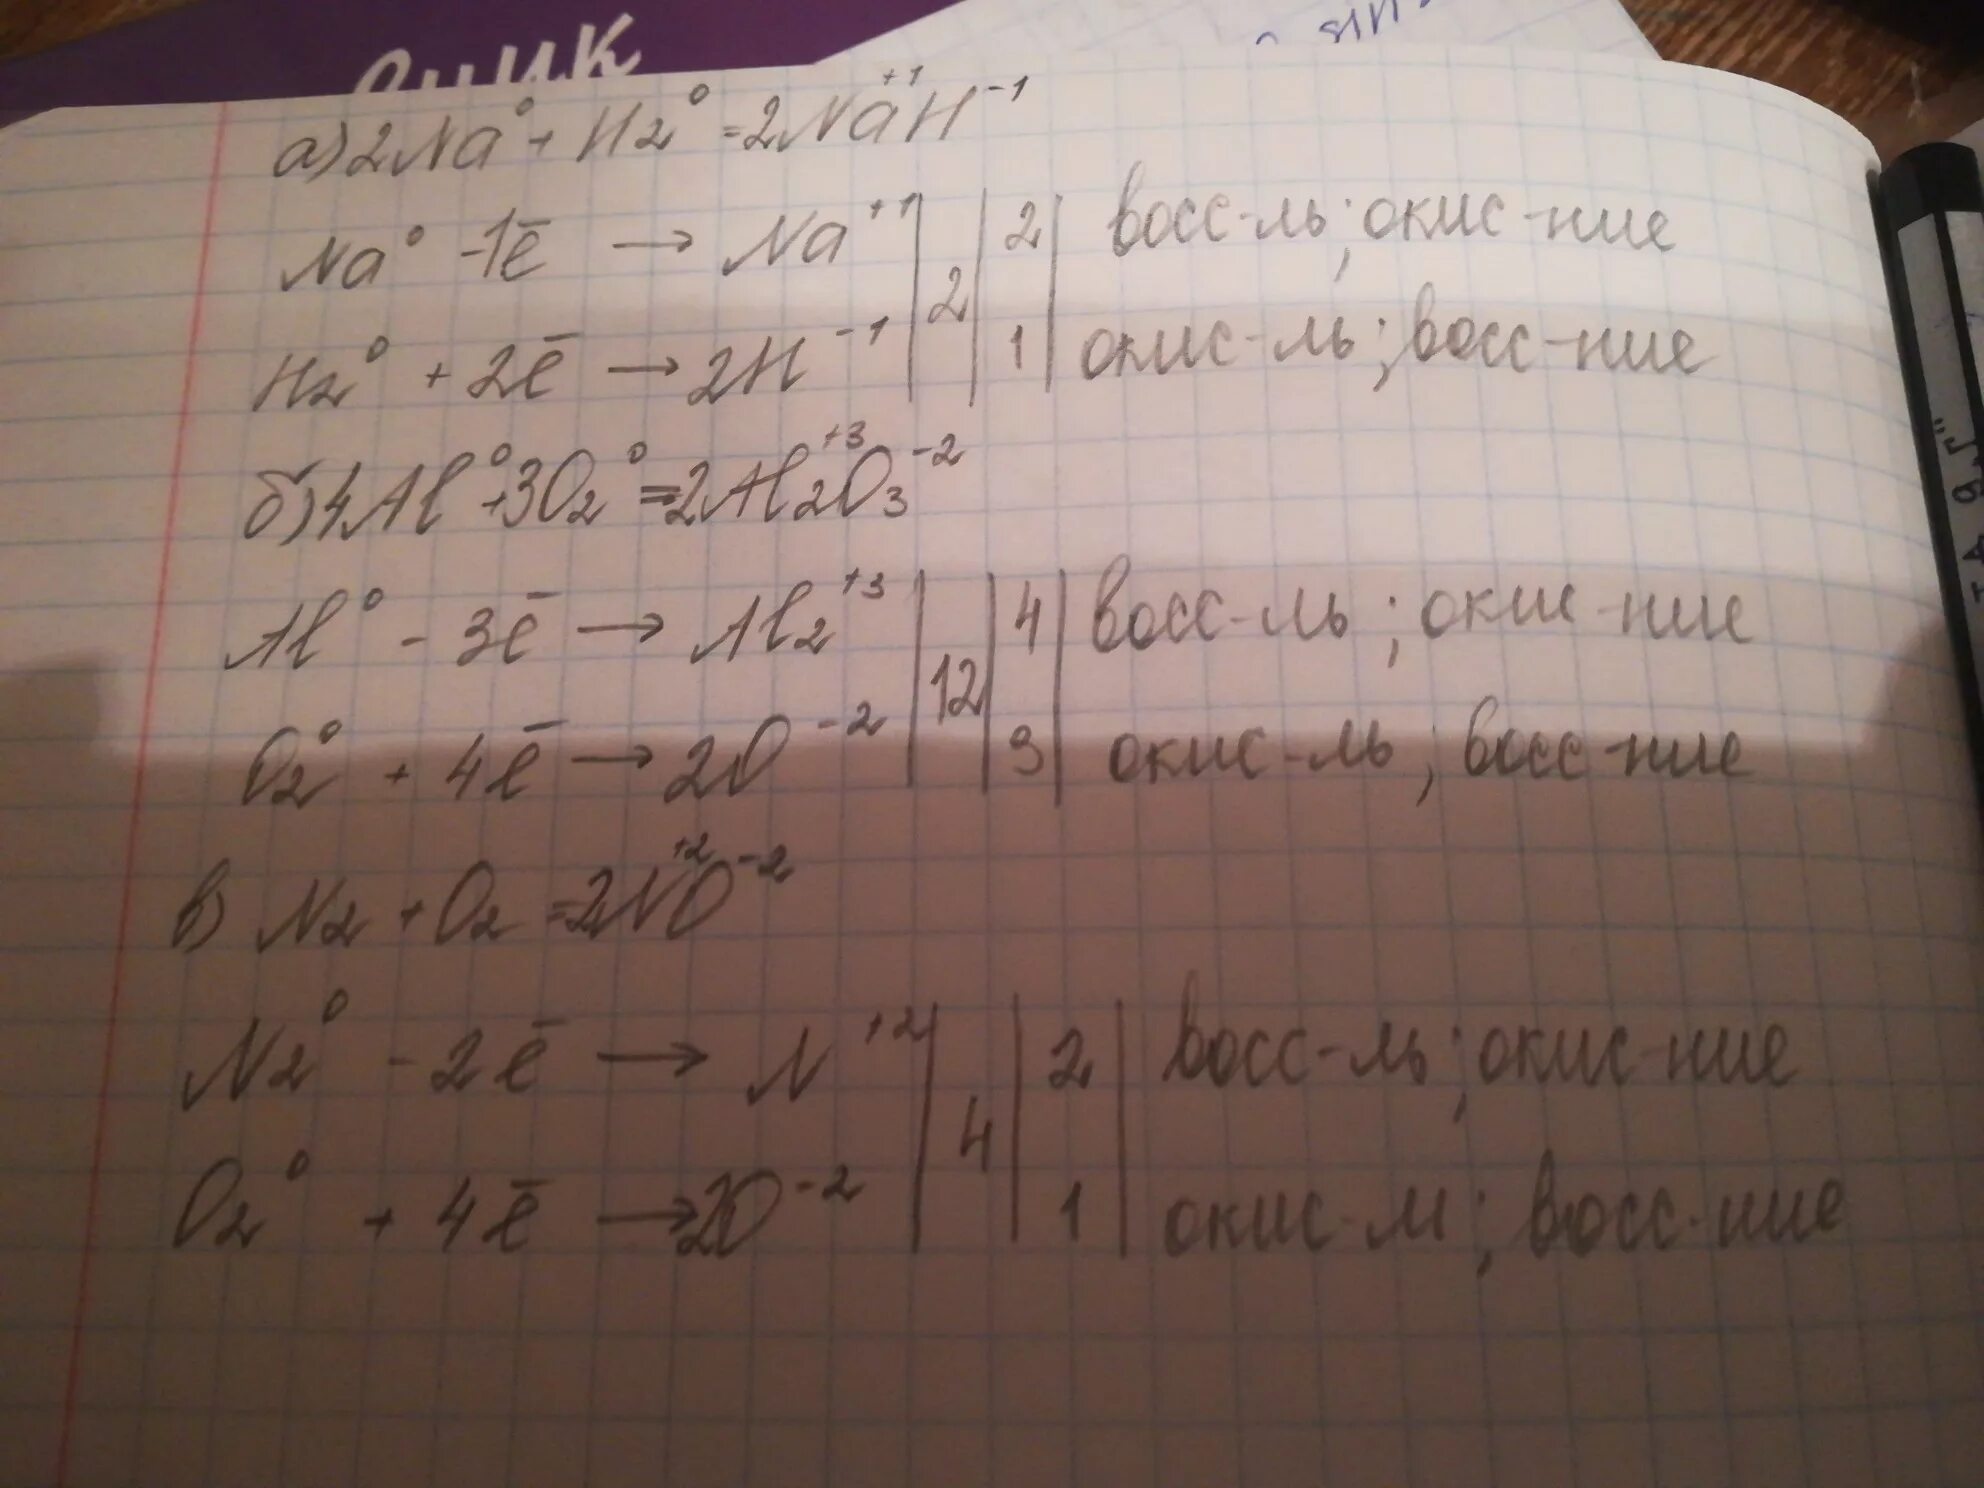 а) 2Na⁰ + H₂⁰ = 2Na⁺¹H⁻¹
Na⁰ - 1ē → Na⁺¹ | 2 | 2 | восс-ль; окис-ние
H₂⁰ + 2ē → 2H⁻¹ | 1 | окис-ль; восс-ние
б) 4Al⁰ + 3O₂⁰ = 2Al₂⁺³O₃⁻²
Al⁰ - 3ē → Al₂⁺³ | 12 | 4 | восс-ль; окис-ние
O₂⁰ + 4ē → 2O⁻² | 3 | окис-ль; восс-ние
в) N₂ + O₂ = 2N⁺²O⁻²
N₂⁰ - 2ē → N⁺² | 4 | 2 | восс-ль; окис-ние
O₂⁰ + 4ē → 2O⁻² | 1 | окис-ль; восс-ние